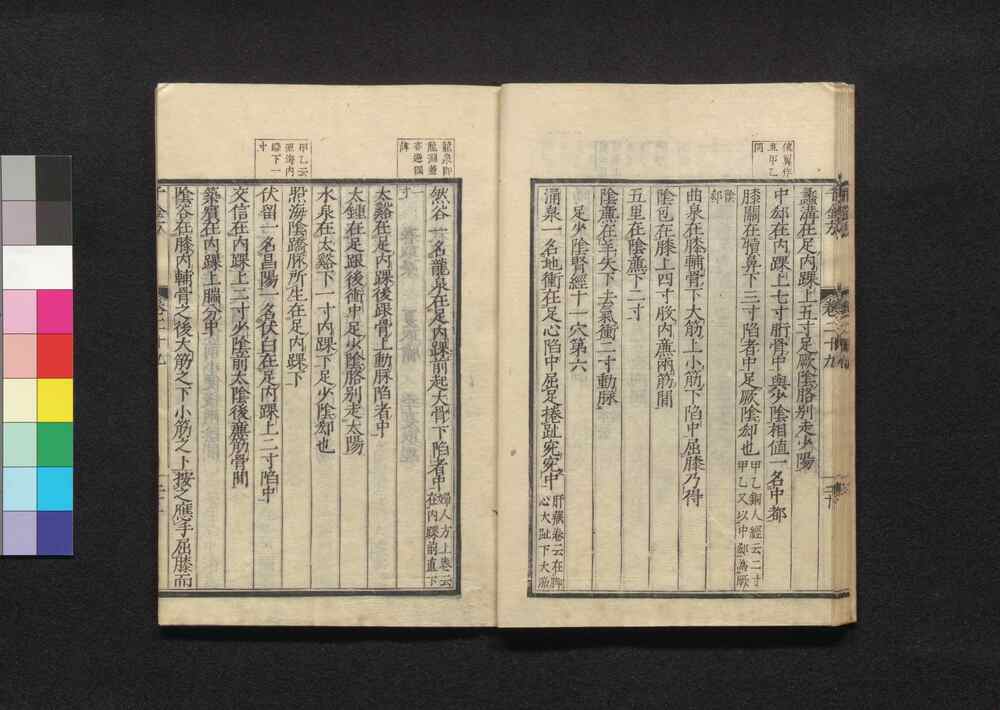 蠡溝在足內踝上五寸足厥陰胳別走少陽
中郄在內踝上七寸䯒骨中與少陰相值一名中都
膝關在犢鼻下三寸陷者中足厥陰郄也甲乙銅人經云二寸甲乙又以中郄為厥
陰郄
曲泉在膝輔骨下大筋上小筋下陷中屈膝乃得
陰包在膝上四寸股內廉兩筋間
五里在陰廉下二寸
陰廉在羊矢下去氣衝二寸動脈中
足少陰腎經十一穴第六
涌泉一名地衝在足心陷中屈足捲趾宛宛中肝藏卷云在脚心大趾下大筋
龍泉即
然谷一名龍泉在足內踝前起大骨下陷者中婦人方上卷云在內踝前直下
一寸
太谿在足內踝後跟骨上動脈陷者中
太鍾在足跟後衝中足少陰胳別走太陽
水泉在太谿下一寸內踝下足少陰郄也
照海陰蹻脈所生在足內踝下
甲乙云
照海內
踝下一
寸
伏留一名昌陽一名伏白在足內踝上二寸陷中
交信在內踝上二寸少陰前太陰後廉筋骨間
築賓在內踝上腨分中
陰谷在膝內輔骨之後大筋之下小筋之上按之應手屈膝而